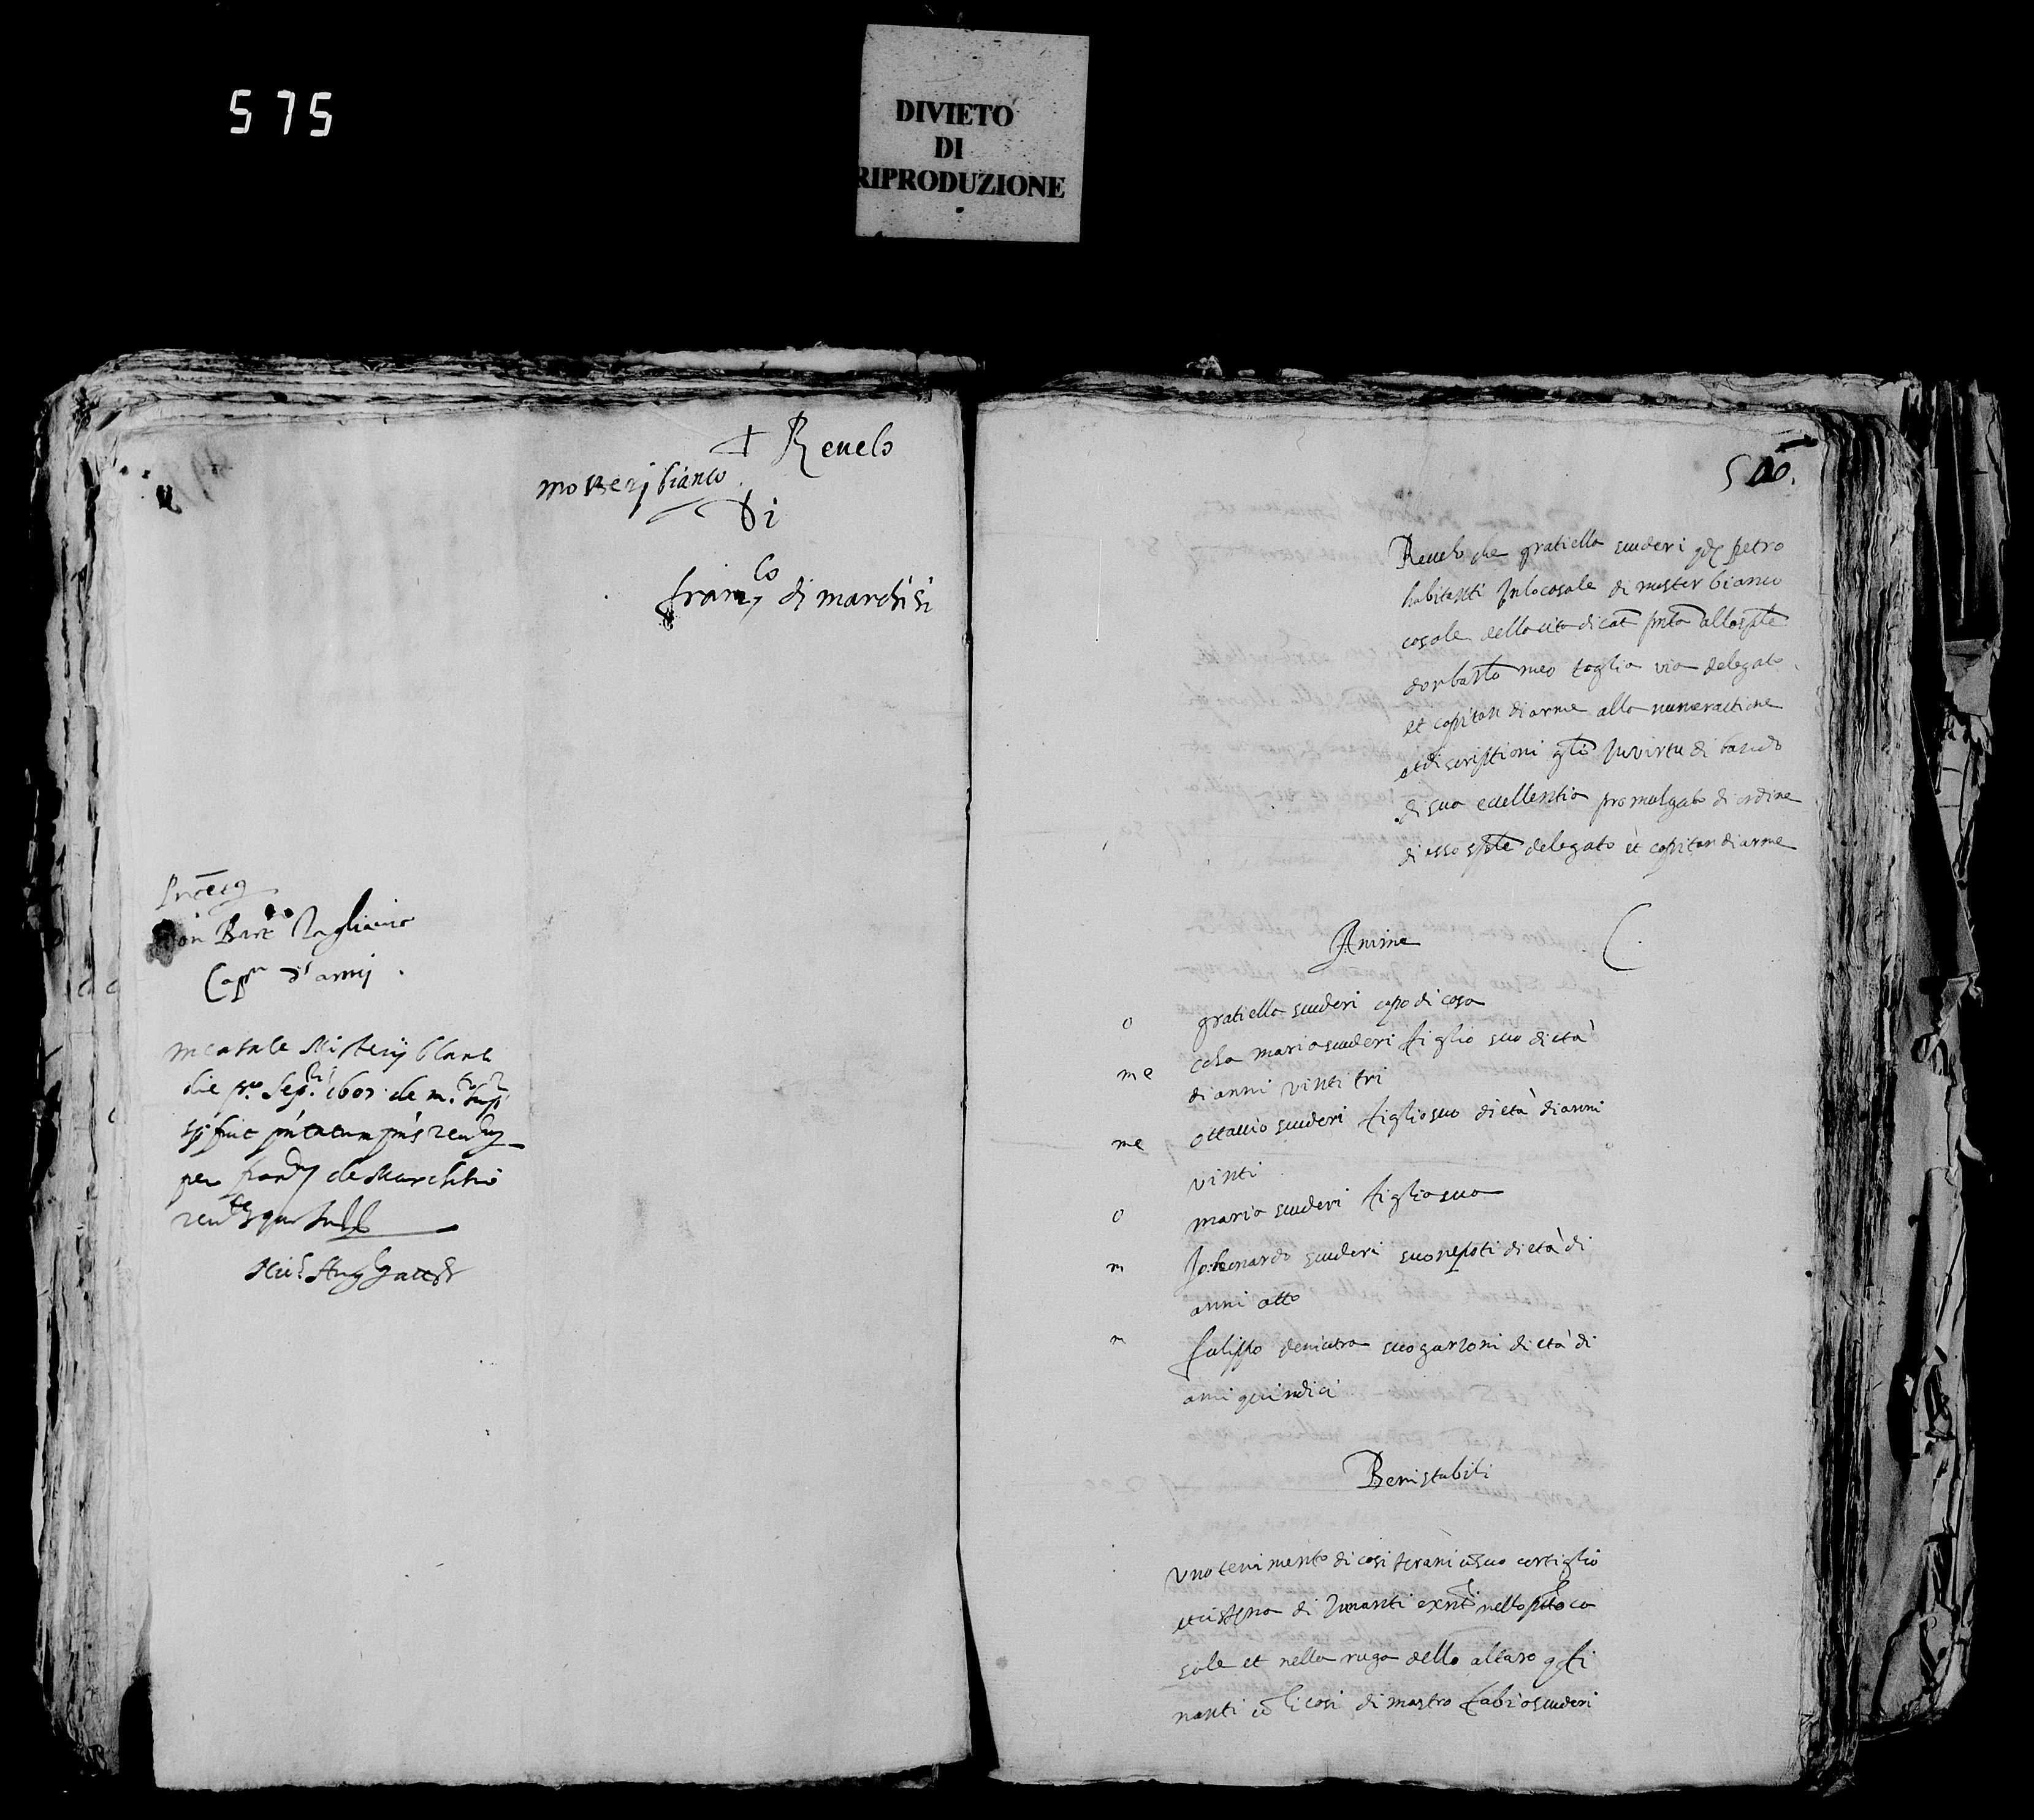 575
DIVIETO
DI
RIPRODUZIONE
+ Revelo
mosteri bianco
Di
fran.co di marchisi
Don Bart.o Tagliavia
Cap.n d'armi
in casale Misterij blanc
die p.o sep.ris 1607 de m.to
sp fuit p̄ntatum p̄ns
per de Marchisio
500.
Revelo che gratiella scuderi petro
habitanti In lo casale di mister bianco
casale della cita di cat p̄nta alla sp̄le
don barto meo taglia via delegato
et capitan di arme alla numeratione
et discriptioni g̃li In virtu di bando
di sua eccellentia promulgato di ordine
di esso sp̄le delegato et capitan di arme
Anime
o gratiella scuderi capo di casa
me cola maria scuderi figlio suo di età
di anni vinti tri
me ottavio scuderi figlio suo di età di anni
vinti
o maria scuderi figlia sua
m Jo: leonardo scuderi suo nepoti di età di
anni otto
m filippo suo garzoni di età di
anni quindici
Beni stabili
Uno tenimento di casi terani c̄ suo cortiglio
et cisterna di Innanti exnti nello p̄tto ca
sale et nella ruga dello altaro
nanti c̄ li casi di mastro fabio scuderi